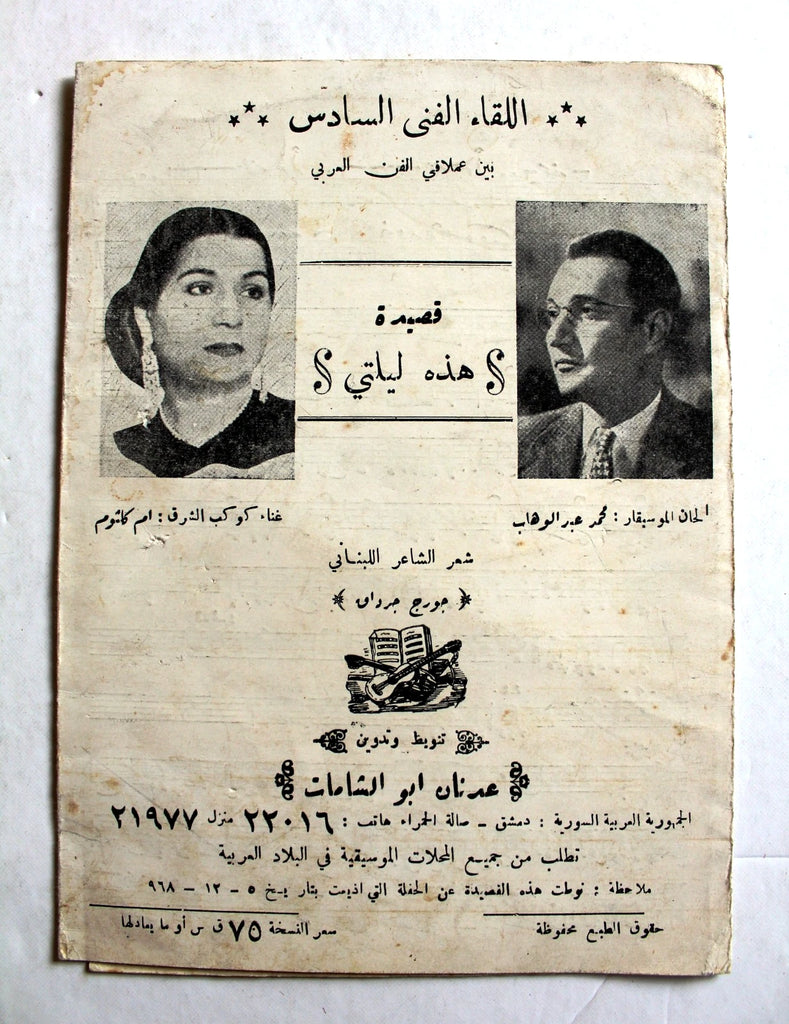 اللقاء الفنى السادس
بين عملاقي الفن العربي
قصيدة
هذه ليلتي
الحان الموسيقار : محمد عبد الوهاب
غناء كوكب الشرق : ام كلثوم
شعر الشاعر اللبناني
جورج جرداق
تنويط وتدوين
عدنان ابو الشامات
الجمهورية العربية السورية : دمشق - صالة الحمراء هاتف : ٢٢٠١٦ منزل ٢١٩٧٧
تطلب من جميع المحلات الموسيقية في البلاد العربية
ملاحظة : نوطت هذه القصيدة عن الحفلة التي اذيعت بتاريخ ٥ - ١٢ - ٩٦٨
حقوق الطبع محفوظة
سعر النسخة ٧٥ ق س أو ما يعادلها